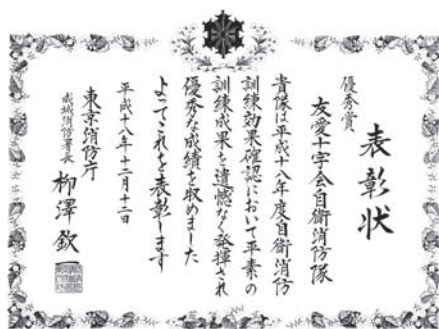 表彰状
優秀賞
友愛十字会自衛消防隊
貴隊は平成十八年度自衛消防
訓練効果確認において平素の
訓練成果を遺憾なく発揮され
優秀な成績を収めました
よってこれを表彰します
平成十八年十二月十二日
東京消防庁
成城消防署長
柳澤欽一